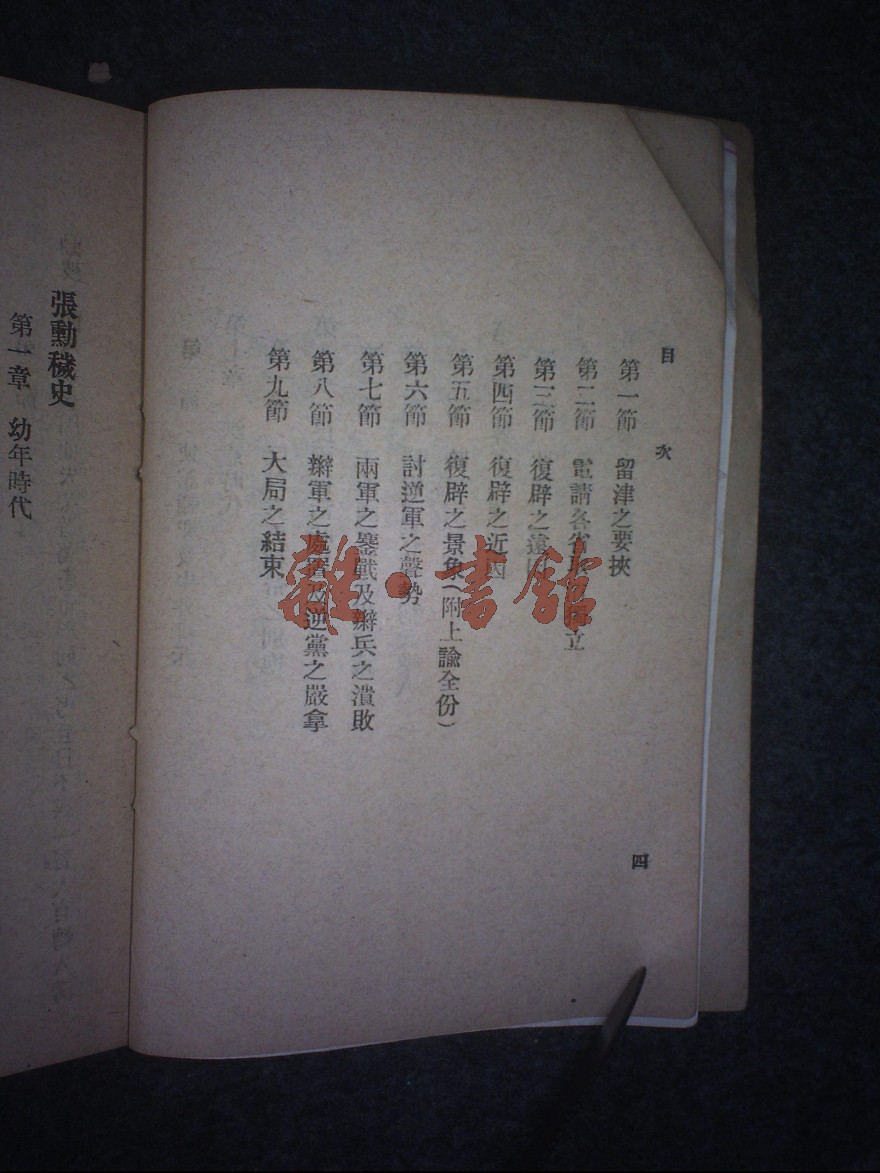 目次
第一節 留津之要挾
第二節 電請各省 立
第三節 復辟之遠因
第四節 復辟之近因
第五節 復辟之景象(附上諭全份)
第六節 討逆軍之聲勢
第七節 兩軍之鏖戰及辮兵之潰敗
第八節 辮軍之處置及逆黨之嚴拿
第九節 大局之結束
四
張勳穢史
第一章 幼年時代
雜·書館